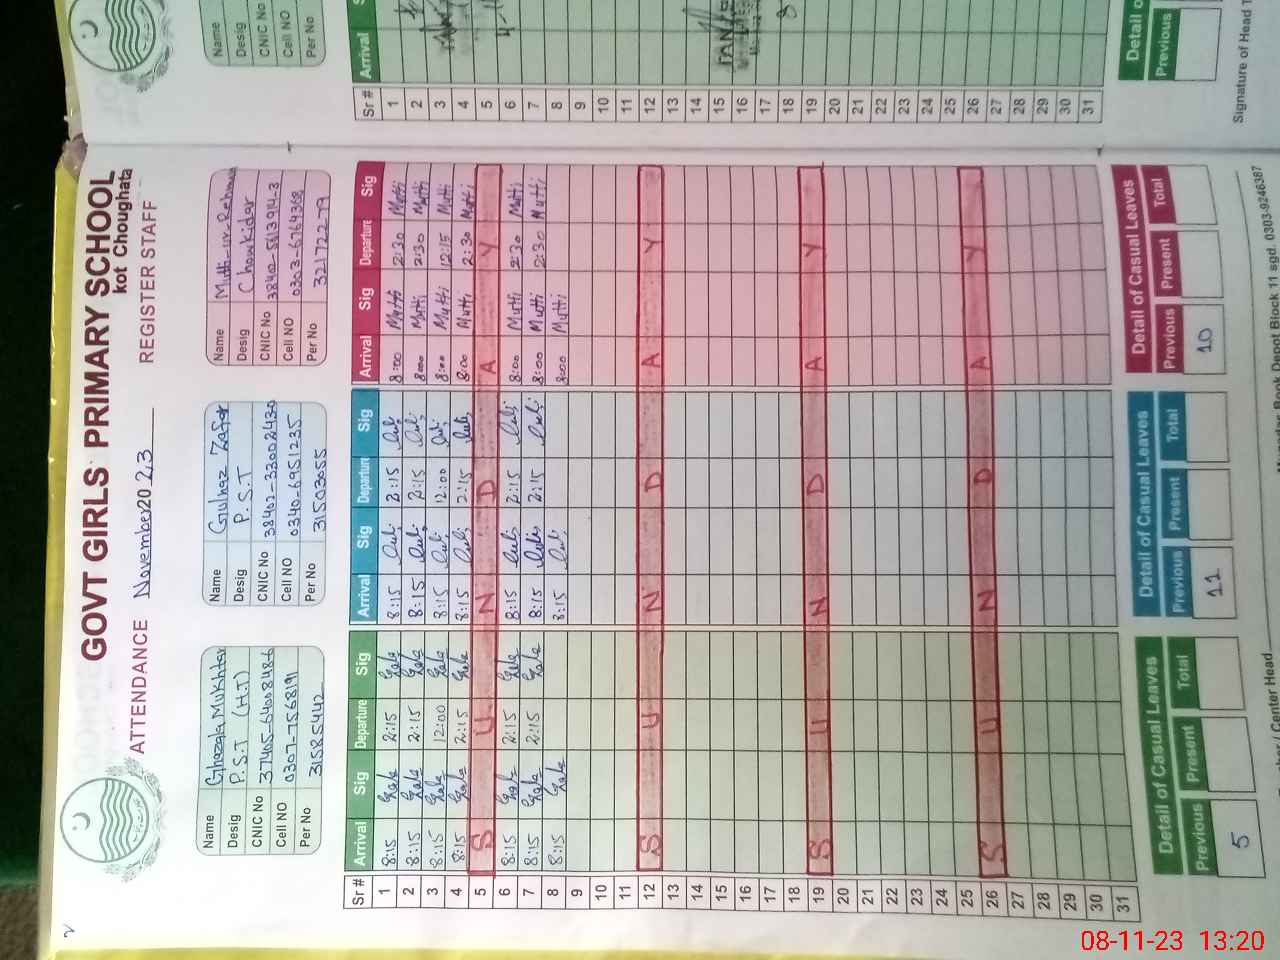 GOVT GIRLS PRIMARY SCHOOL
kot Choughata
ATTENDANCE November 2023 REGISTER STAFF
Name Ghazala Mukhtar
Desig P.S.T (H.T)
CNIC No 37405-6400848-6
Cell NO 0307-7568191
Per No 31585442
Name Gulnaz Zafar
Desig P.S.T
CNIC No 38402-3300243-0
Cell NO 0340-6951235
Per No 31503055
Name Mutti-ur-Rehman
Desig Chowkidar
CNIC No
Cell NO 0303-6764368
Per No 321722-79
Sr # Arrival Sig Departure Sig Arrival Sig Departure Sig Arrival Sig Departure Sig
1 8:15 2:15 8:15 2:15 8:00 Mutti 2:30 Mutti
2 8:15 2:15 8:15 2:15 8:00 Mutti 2:30 Mutti
3 8:15 12:00 8:15 12:00 8:00 Mutti 12:15 Mutti
4 8:15 2:15 8:15 2:15 8:00 Mutti 2:30 Mutti
5 S U N D A Y
6 8:15 2:15 8:15 2:15 8:00 Mutti 2:30 Mutti
7 8:15 2:15 8:15 2:15 8:00 Mutti 2:30 Mutti
8 8:15 8:15 8:00 Mutti
9
10
11
12 S U N D A Y
13
14
15
16
17
18
19 S U N D A Y
20
21
22
23
24
25
26 S U N D A Y
27
28
29
30
31
Detail of Casual Leaves
Previous Present Total
5
Detail of Casual Leaves
Previous Present Total
11
Detail of Casual Leaves
Previous Present Total
10
Center Head
Book Depot Block 11 sgd. 0303-9246387
Name
Desig
CNIC No
Cell NO
Per No
Sr # Arrival
1
2
3
4
5
6
7
8
9
10
11
12
13
14
15
16
17
18
19
20
21
22
23
24
25
26
27
28
29
30
31
Detail o
Previous
Signature of Head T
08-11-23 13:20